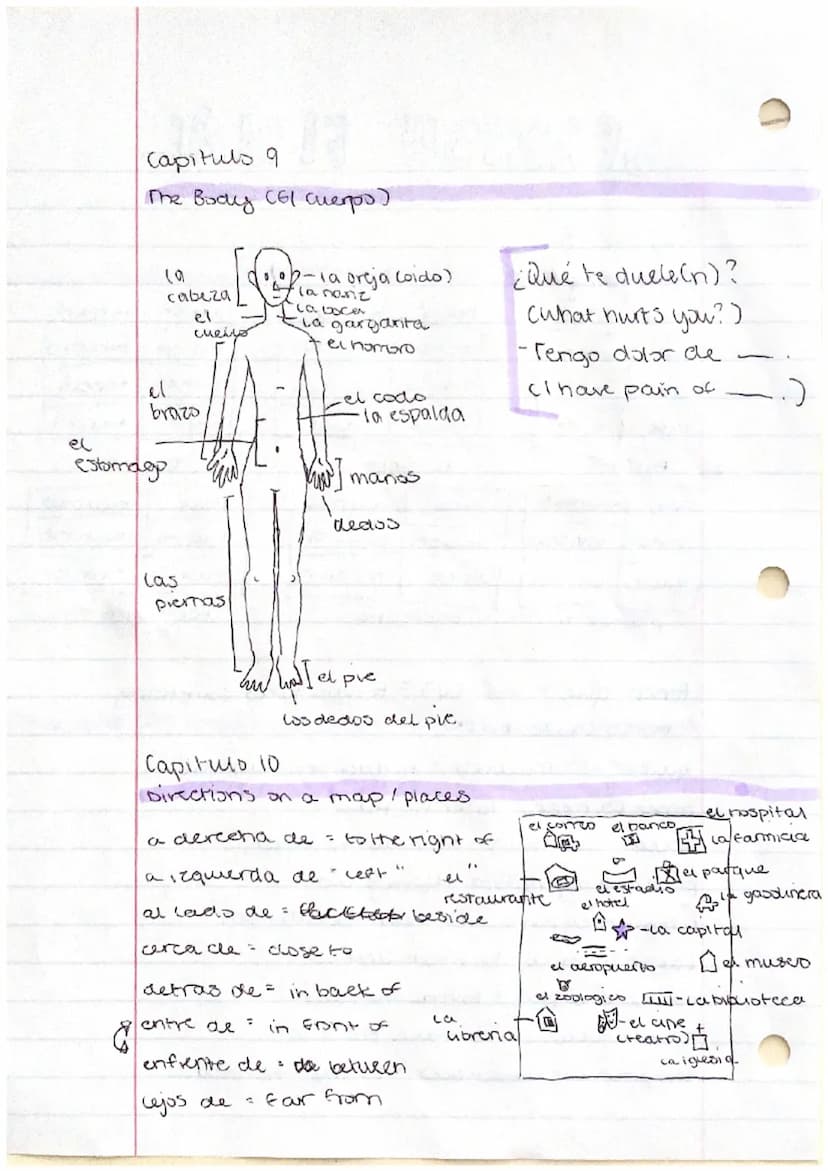 Capitulo 9
The Body (El Cuerpo)
la cabeza
la oreja (oido)
la nariz
la boca
la garganta
el cuello
el hombro
el brazo
el codo
la espalda
el estomago
manos
dedos
las piernas
el pie
los dedos del pie
¿Qué te duele(n)?
(What hurts you?)
- Tengo dolor de ___.
(I have pain of ___.)
Capitulo 10
Directions on a map / places
a derecha de = to the right of
a izquierda de = left " "
al lado de = beside
cerca de = close to
detras de = in back of
entre de = in front of
enfrente de = between
lejos de = far from
el correo
el banco
el hospital
la farmicia
el restaurante
el estadio
el parque
el hotel
la gasolinera
la capital
el aeropuerto
el museo
el zoologico
la biblioteca
la libreria
el cine (teatro)
la iglesia